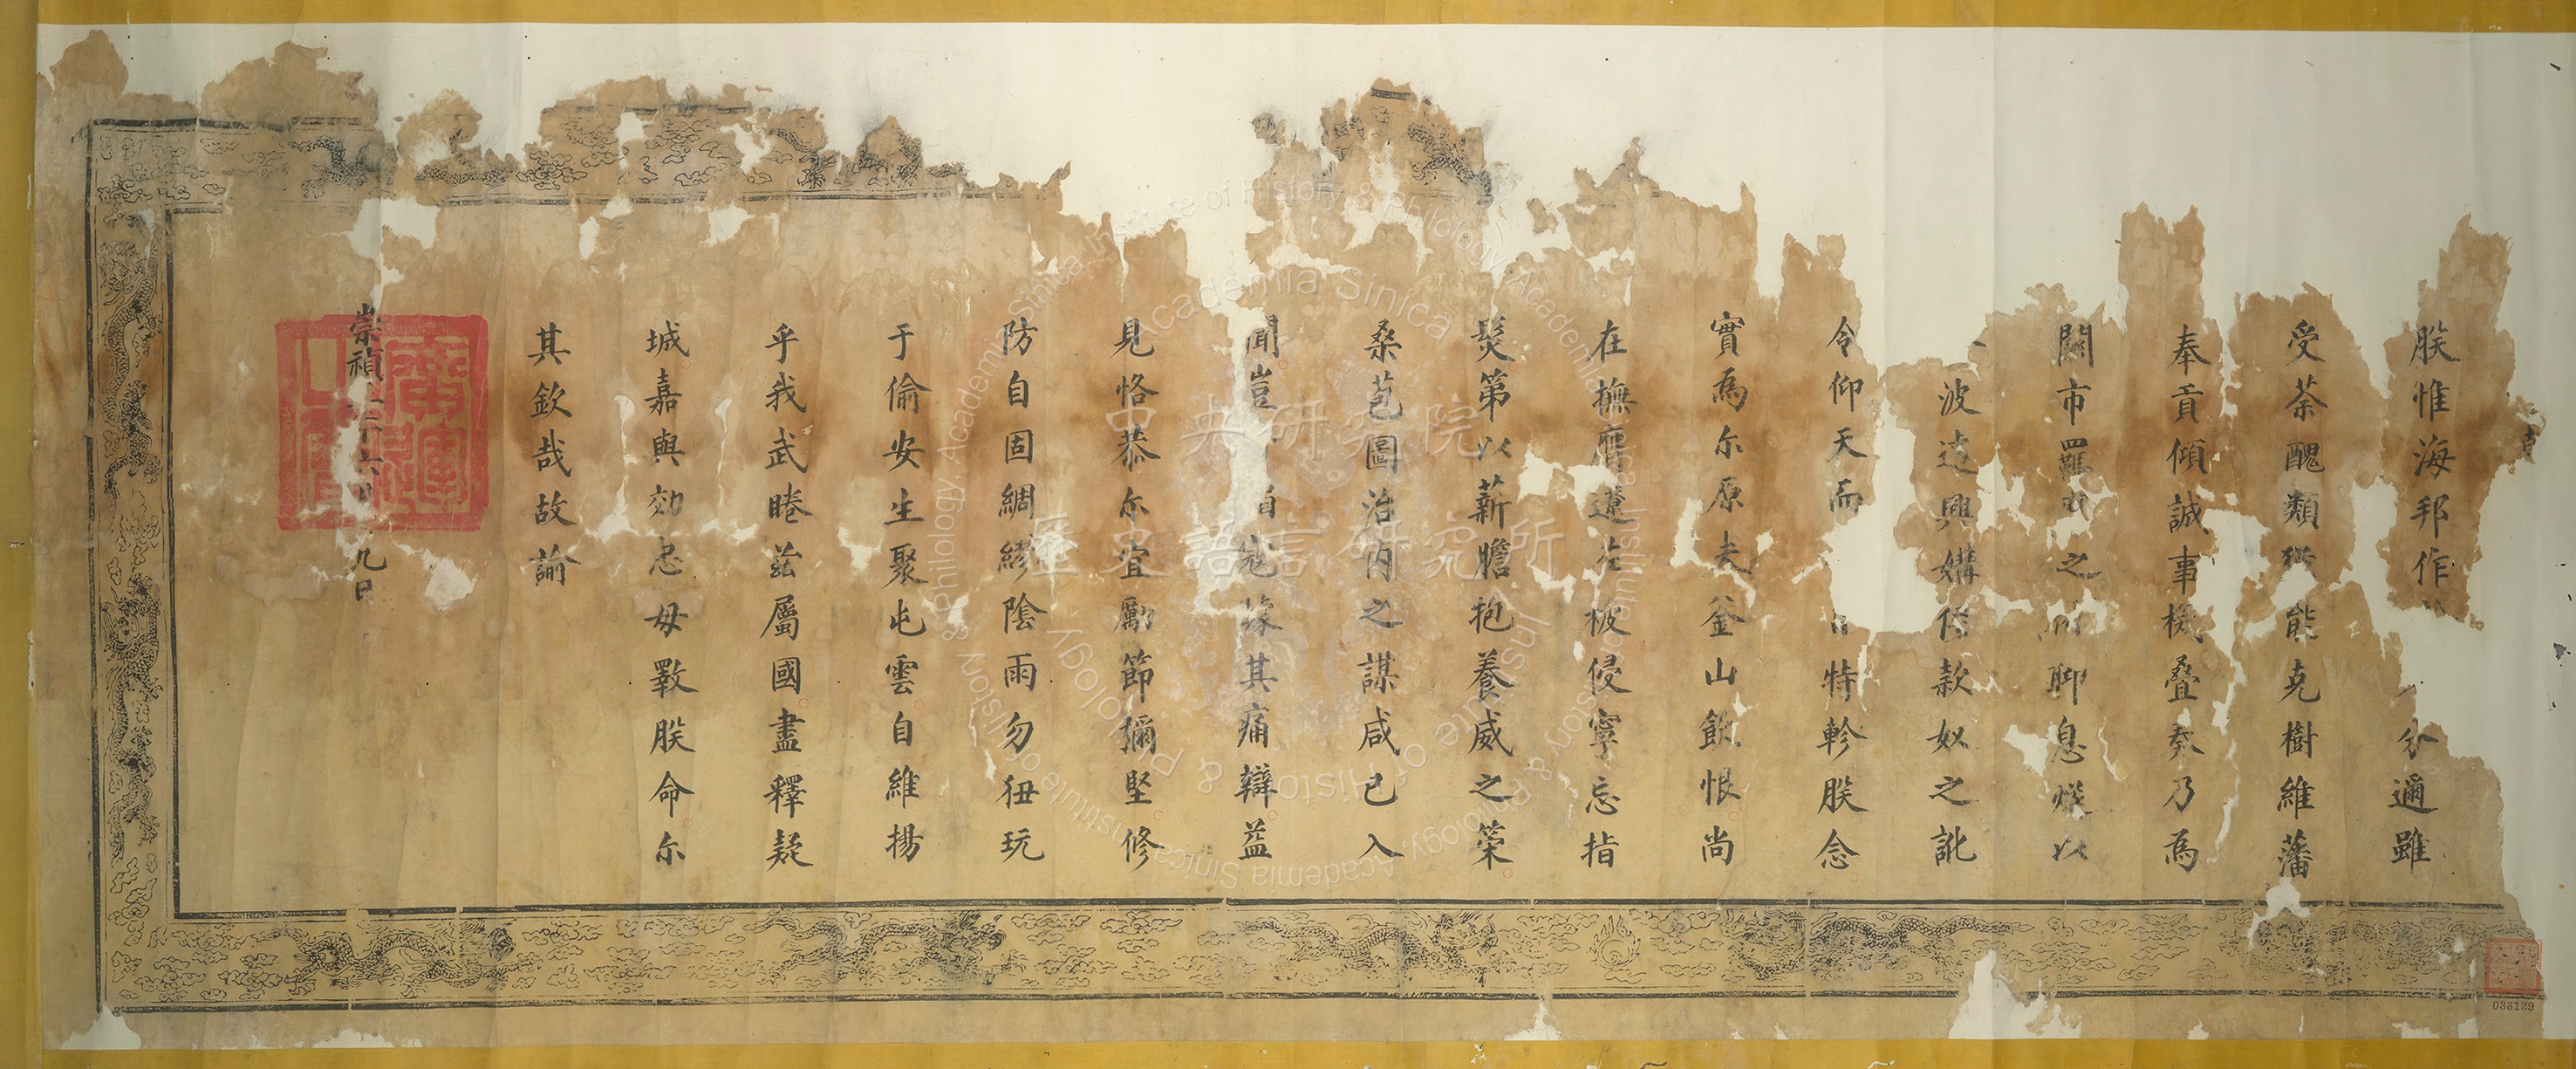 朕惟海邦作分邇雖
受荼醜類能克樹維藩
奉貢傾誠事機疊奏乃為
關市羈之聊息以
波遼興媾款奴之訛
令仰天而特軫朕念
實為尔原夫釜山飲恨尚
在撫膺遼左被侵寧忘指
髮第以薪膽抱養威之策
桑苞圖治內之謀咸已入
聞豈自寇緣其痛辯益
見恪恭尔宜勵節彌堅修
防自固綢繆陰雨勿狃玩
于偷安生聚屯雲自維揚
乎我武睠茲屬國盡釋疑
城嘉與効忠毋斁朕命尔
其欽哉故諭
崇禎六九日
廣運之寶
中央研究院
歷史語言研究所
Institute of History & Philology, Academia Sinica
038129